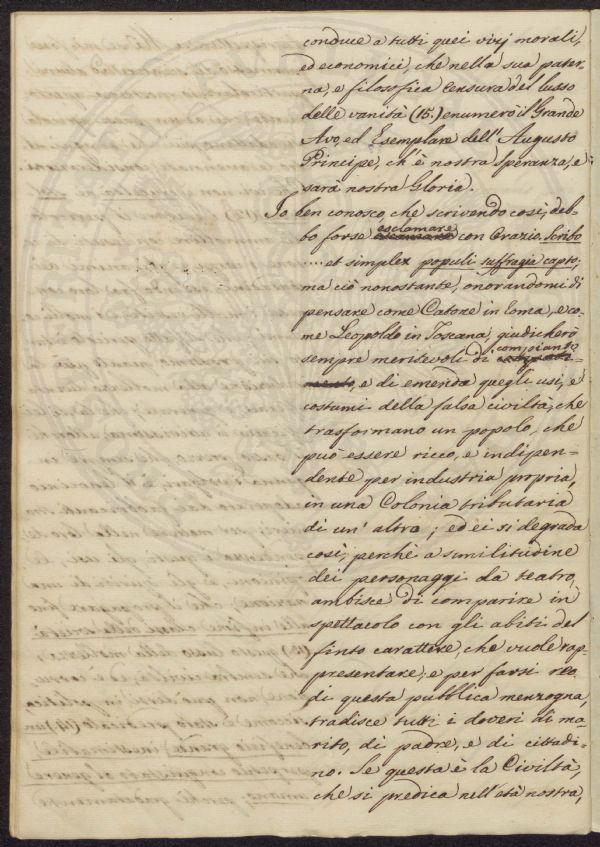 conduce a tutti quei vizj morali,
ed economici, che nella sua pater-
na, e filosofica Censura del lusso
delle vanità (15.) enumerò il Grande
Avo, ed Esemplare dell'Augusto
Principe, ch'è nostra Speranza, e
sarà nostra Gloria.
Io ben conosco, che scrivendo così, deb-
esclamare
bo forse con Orazio. Scribo
.... et simplex populi suffragia capto;
ma ciò nonostante, onorandomi di
pensare come Catone in Roma, e co-
me Leopoldo in Toscana, giudicherò
compianto
sempre meritevoli di
e di emenda quegli usi, e
costumi della falsa civiltà, che
trasformano un popolo, che
può essere ricco, e indipen-
dente per industria propria,
in una Colonia tributaria
di un'altro; ed ei si degrada
così, perchè a similitudine
dei personaggi da teatro,
ambisce di comparire in
spettacolo con gli abiti del
finto carattere, che vuole rap-
presentare, e per farsi reo
di questa pubblica menzogna,
tradisce tutti i doveri di ma-
rito, di padre, e di cittadi-
no. Se questa è la Civiltà,
che si predica nell'età nostra,